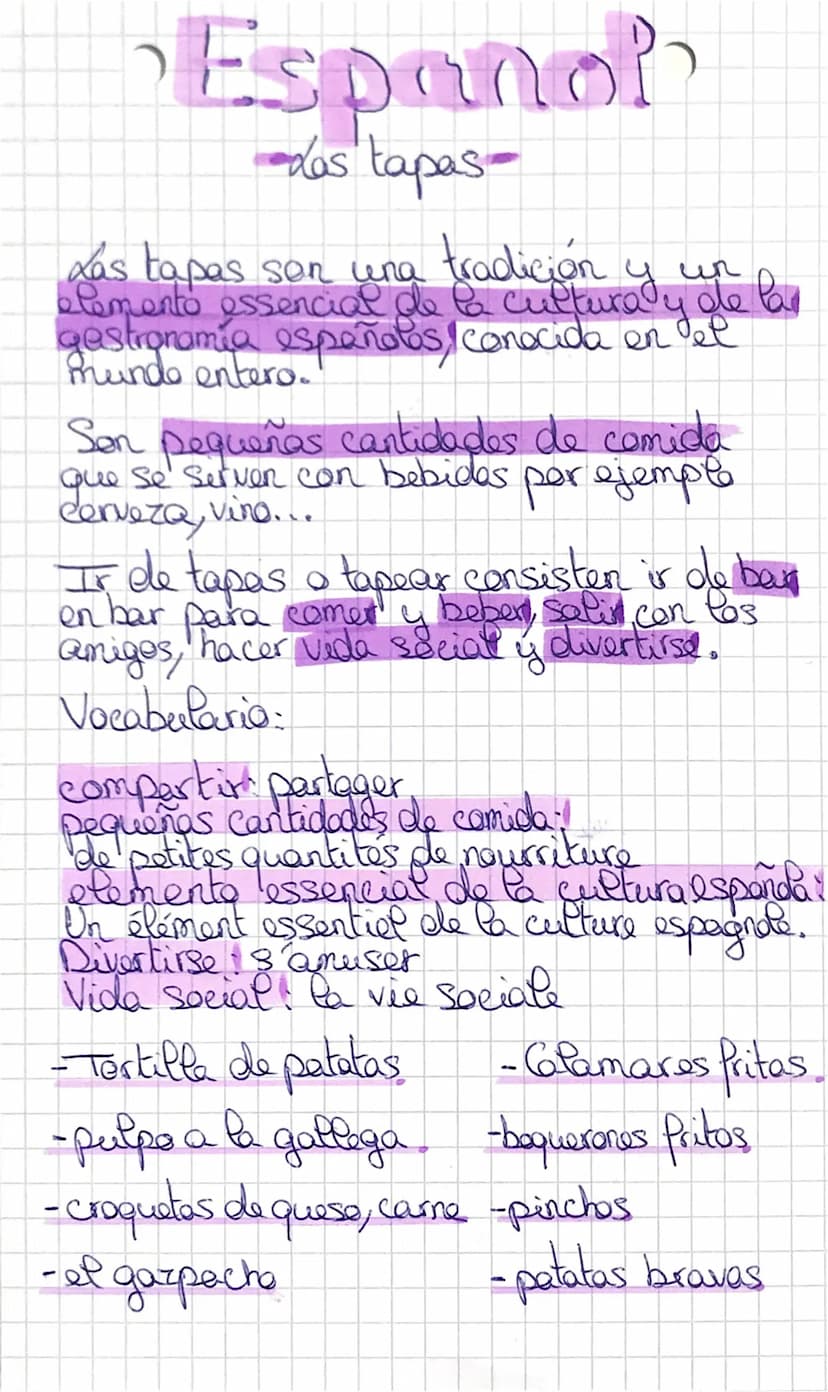 Espanol
-Las tapas-
Las tapas son una tradición y un
elemento essencial de la cultura y de la
gastronomía españolas, conocida en el
mundo entero.
Son pequeñas cantidades de comida
que se sirven con bebidas por ejemplo
cerveza, vino...
Ir de tapas o tapear consisten ir de bar
en bar para comer y beber, salir con los
amigos, hacer vida social y divertirse.
Vocabulario:
compartir: partager
pequeñas cantidades de comida:
de petites quantités de nourriture
elemento essencial de la cultura española:
Un élément essentiel de la culture espagnole.
Divertirse: s'amuser
Vida social: la vie sociale
-Tortilla de patatas. -Calamares fritas.
-pulpo a la gallega. -boquerones fritos
-croquetas de queso, carne -pinchos
-el gazpacho -patatas bravas